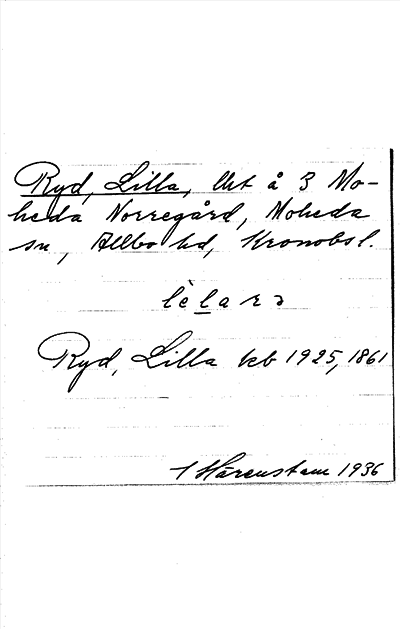 Ryd, Lilla, lht å 3 Mo-
heda Norregård, Moheda
sn, Allbo hd, Kronobsl.
Ryd, Lilla kb 1925, 1861
Hårenstam 1936